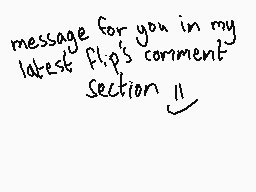 message for you in my
latest flip's comment
section